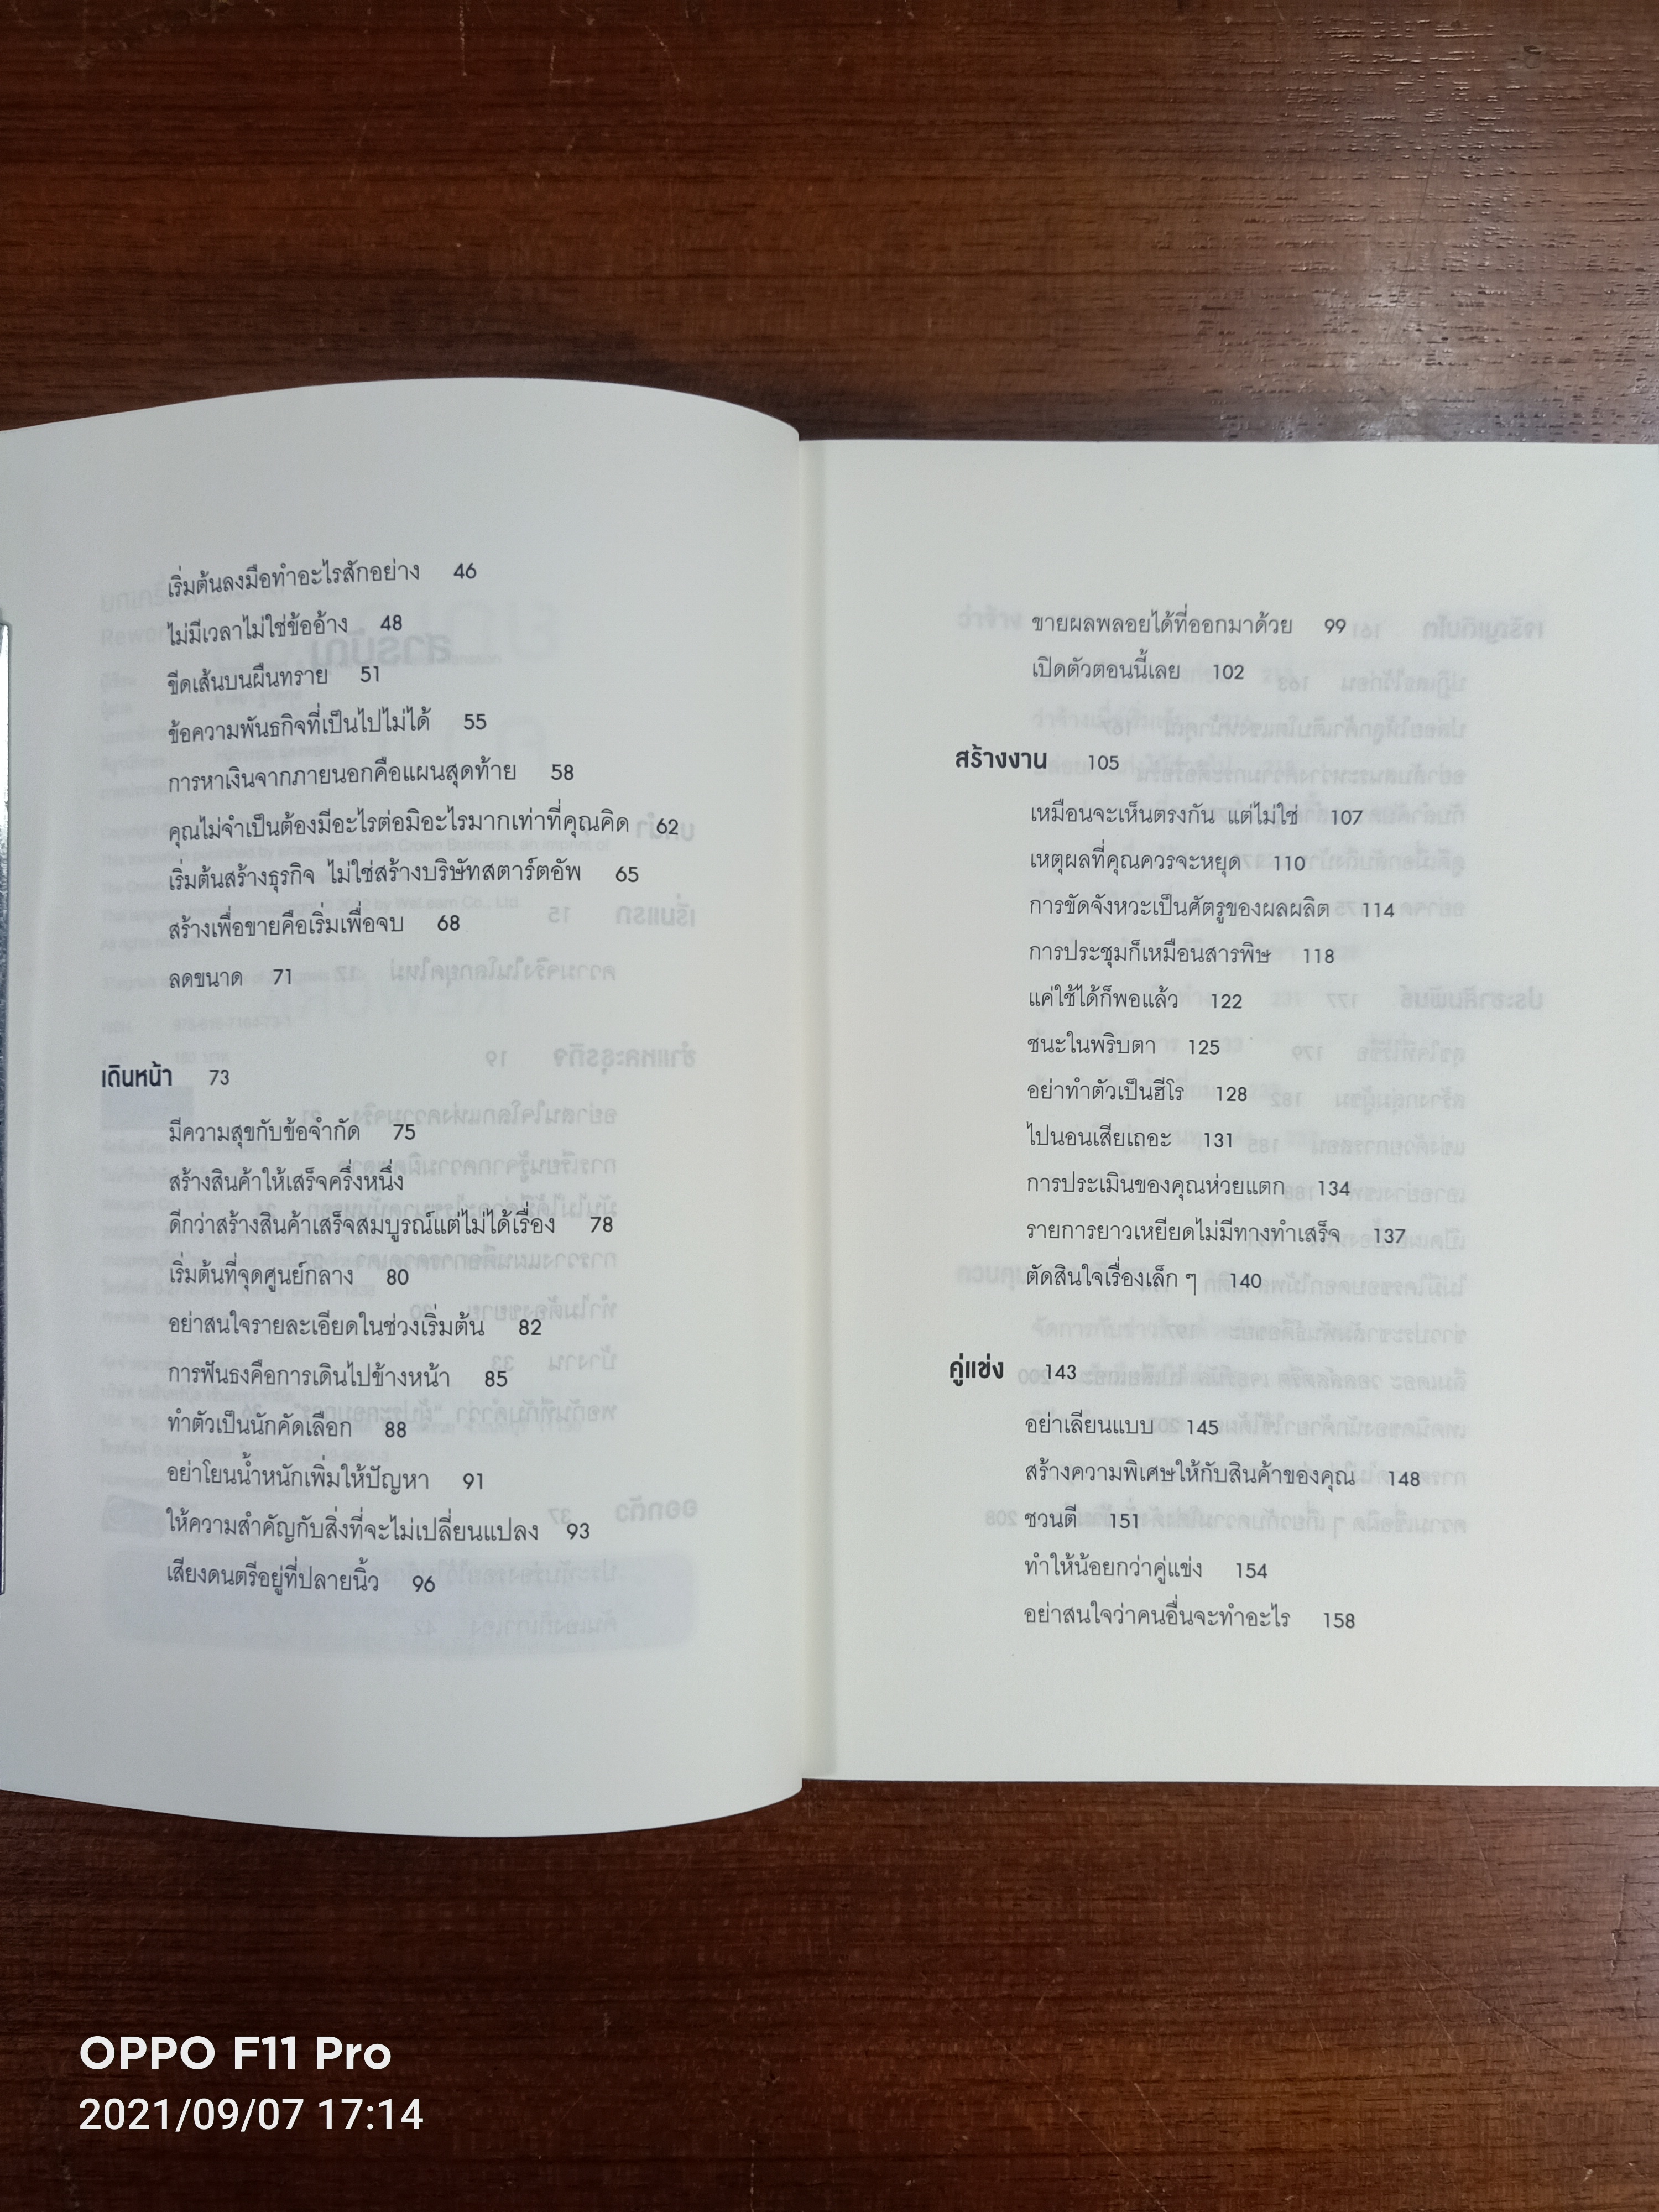 เริ่มต้นลงมือทำอะไรสักอย่าง 46
ไม่มีเวลาไม่ใช่ข้ออ้าง 48
ขีดเส้นบนผืนทราย 51
ข้อความพันธกิจที่เป็นไปไม่ได้ 55
การหาเงินจากภายนอกคือแผนสุดท้าย 58
คุณไม่จำเป็นต้องมีอะไรต่อมิอะไรมากเท่าที่คุณคิด 62
เริ่มต้นสร้างธุรกิจ ไม่ใช่สร้างบริษัทสตาร์ตอัพ 65
สร้างเพื่อขายคือเริ่มเพื่อจบ 68
ลดขนาด 71
เดินหน้า 73
มีความสุขกับข้อจำกัด 75
สร้างสินค้าให้เสร็จครึ่งหนึ่ง
ดีกว่าสร้างสินค้าเสร็จสมบูรณ์แต่ไม่ได้เรื่อง 78
เริ่มต้นที่จุดศูนย์กลาง 80
อย่าสนใจรายละเอียดในช่วงเริ่มต้น 82
การฟันธงคือการเดินไปข้างหน้า 85
ทำตัวเป็นนักคัดเลือก 88
อย่าโยนน้ำหนักเพิ่มให้ปัญหา 91
ให้ความสำคัญกับสิ่งที่จะไม่เปลี่ยนแปลง 93
เสียงดนตรีอยู่ที่ปลายนิ้ว 96
ขายผลพลอยได้ที่ออกมาด้วย 99
เปิดตัวตอนนี้เลย 102
สร้างงาน 105
เหมือนจะเห็นตรงกัน แต่ไม่ใช่ 107
เหตุผลที่คุณควรจะหยุด 110
การขัดจังหวะเป็นศัตรูของผลผลิต 114
การประชุมก็เหมือนสารพิษ 118
แค่ใช้ได้ก็พอแล้ว 122
ชนะในพริบตา 125
อย่าทำตัวเป็นฮีโร 128
ไปนอนเสียเถอะ 131
การประเมินของคุณห่วยแตก 134
รายการยาวเหยียดไม่มีทางทำเสร็จ 137
ตัดสินใจเรื่องเล็ก ๆ 140
คู่แข่ง 143
อย่าเลียนแบบ 145
สร้างความพิเศษให้กับสินค้าของคุณ 148
ชวนตี 151
ทำให้น้อยกว่าคู่แข่ง 154
อย่าสนใจว่าคนอื่นจะทำอะไร 158
OPPO F11 Pro
2021/09/07 17:14